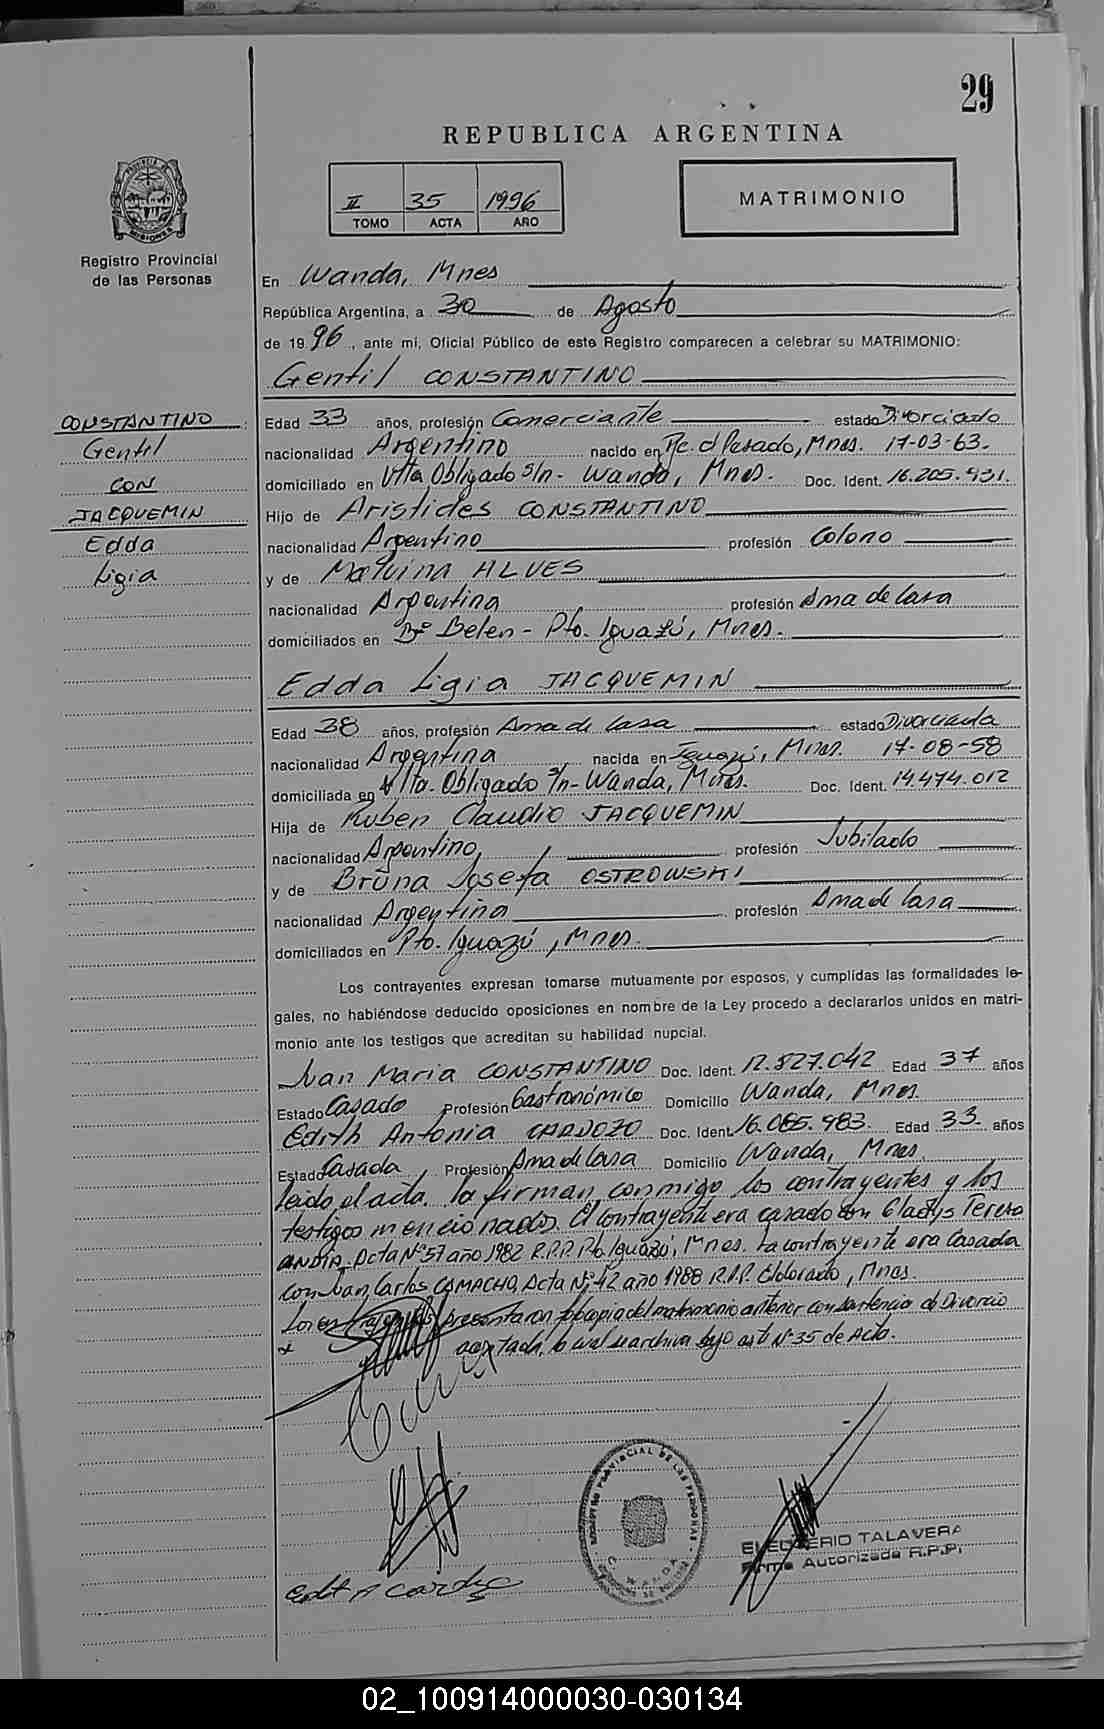 29
REPUBLICA ARGENTINA
II 35 1996
TOMO ACTA AÑO
MATRIMONIO
PROVINCIA DE MISIONES
Registro Provincial
de las Personas
En Wanda, Mnes
República Argentina, a 30 de Agosto
de 1996, ante mi, Oficial Público de este Registro comparecen a celebrar su MATRIMONIO:
Gentil CONSTANTINO
CONSTANTINO
Gentil
CON
JACQUEMIN
Edda
Ligia
Edad 33 años, profesión Comerciante estado Divorciado
nacionalidad Argentino nacido en Pto. , Mnes. 17-03-63.
domiciliado en Vtta Obligado s/n- Wanda, Mnes. Doc. Ident. 16.205.931.
Hijo de Aristides CONSTANTINO
nacionalidad Argentino profesión Colono
y de Malvina ALVES
nacionalidad Argentina profesión Ama de Casa
domiciliados en Bº Belen - Pto. Iguazú, Mnes.
Edda Ligia JACQUEMIN
Edad 38 años, profesión Ama de Casa estado Divorciada
nacionalidad Argentina nacida en Iguazú, Mnes. 17-08-58
domiciliada en Vtta. Obligado s/n-Wanda, Mnes. Doc. Ident. 14.474.012
Hija de Ruben Claudio JACQUEMIN
nacionalidad Argentino profesión Jubilado
y de Bruna Josefa OSTROWSKI
nacionalidad Argentina profesión Ama de Casa
domiciliados en Pto. Iguazú, Mnes.
Los contrayentes expresan tomarse mutuamente por esposos, y cumplidas las formalidades le-
gales, no habiéndose deducido oposiciones en nombre de la Ley procedo a declararlos unidos en matri-
monio ante los testigos que acreditan su habilidad nupcial.
Juan Maria CONSTANTINO Doc. Ident. 12.827.042 Edad 37 años
Estado Casado Profesión Gastronómico Domicilio Wanda, Mnes.
Edith Antonia CARDOZO Doc. Ident. 16.085.983. Edad 33 años
Estado Casada, Profesión Ama de Casa Domicilio Wanda, Mnes.
Leido el acta, la firman conmigo los contrayentes y los
testigos mencionados. El contrayente era casado con Gladys Teresa
ANDIA, Acta Nº 57 año 1982 R.P.P. Pto. Iguazú, Mnes. La contrayente era Casada
con Juan Carlos CAMACHO, Acta Nº 42 año 1988 R.P.P. Eldorado, Mnes.
Los contrayentes presentaron fotocopia del matrimonio anterior con sentencia de Divorcio
lo cual se archiva bajo Nº 35 de Acta.
Edit A Cardozo
REGISTRO PROVINCIAL DE LAS PERSONAS
WANDA
ELEUTERIO TALAVERA
Firma Autorizada R.P.P.
02_100914000030-030134